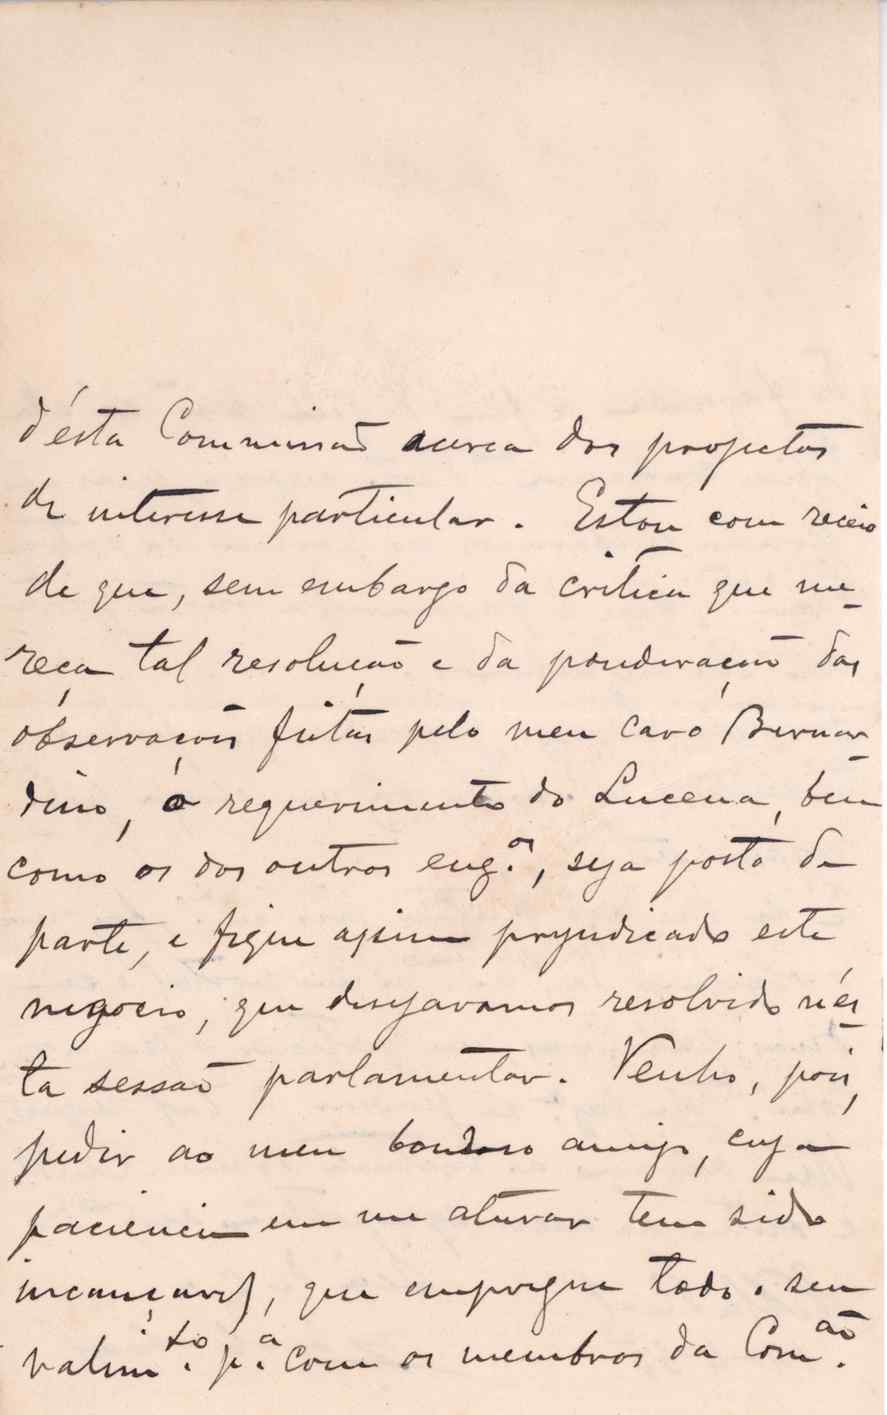 d'ésta Commissão acerca dos projectos
de interesse particular. Estou com receio
de que, sem embargo da critica que me-
reça tal resolução e da ponderação das
observações feitas pelo meu caro Bernar-
dino, o requerimento do Lucena, bem
como os dos outros eng.os, seja posto de
parte, e fique assim prejudicado este
negocio, que desejavamos resolvido n'és-
ta sessão parlamentar. Venho, pois,
pedir ao meu bondoso amigo, cuja
paciencia em me aturar tem sido
incançavel, que empregue todo o seu
valim.to p.a com os membros da Com.ão